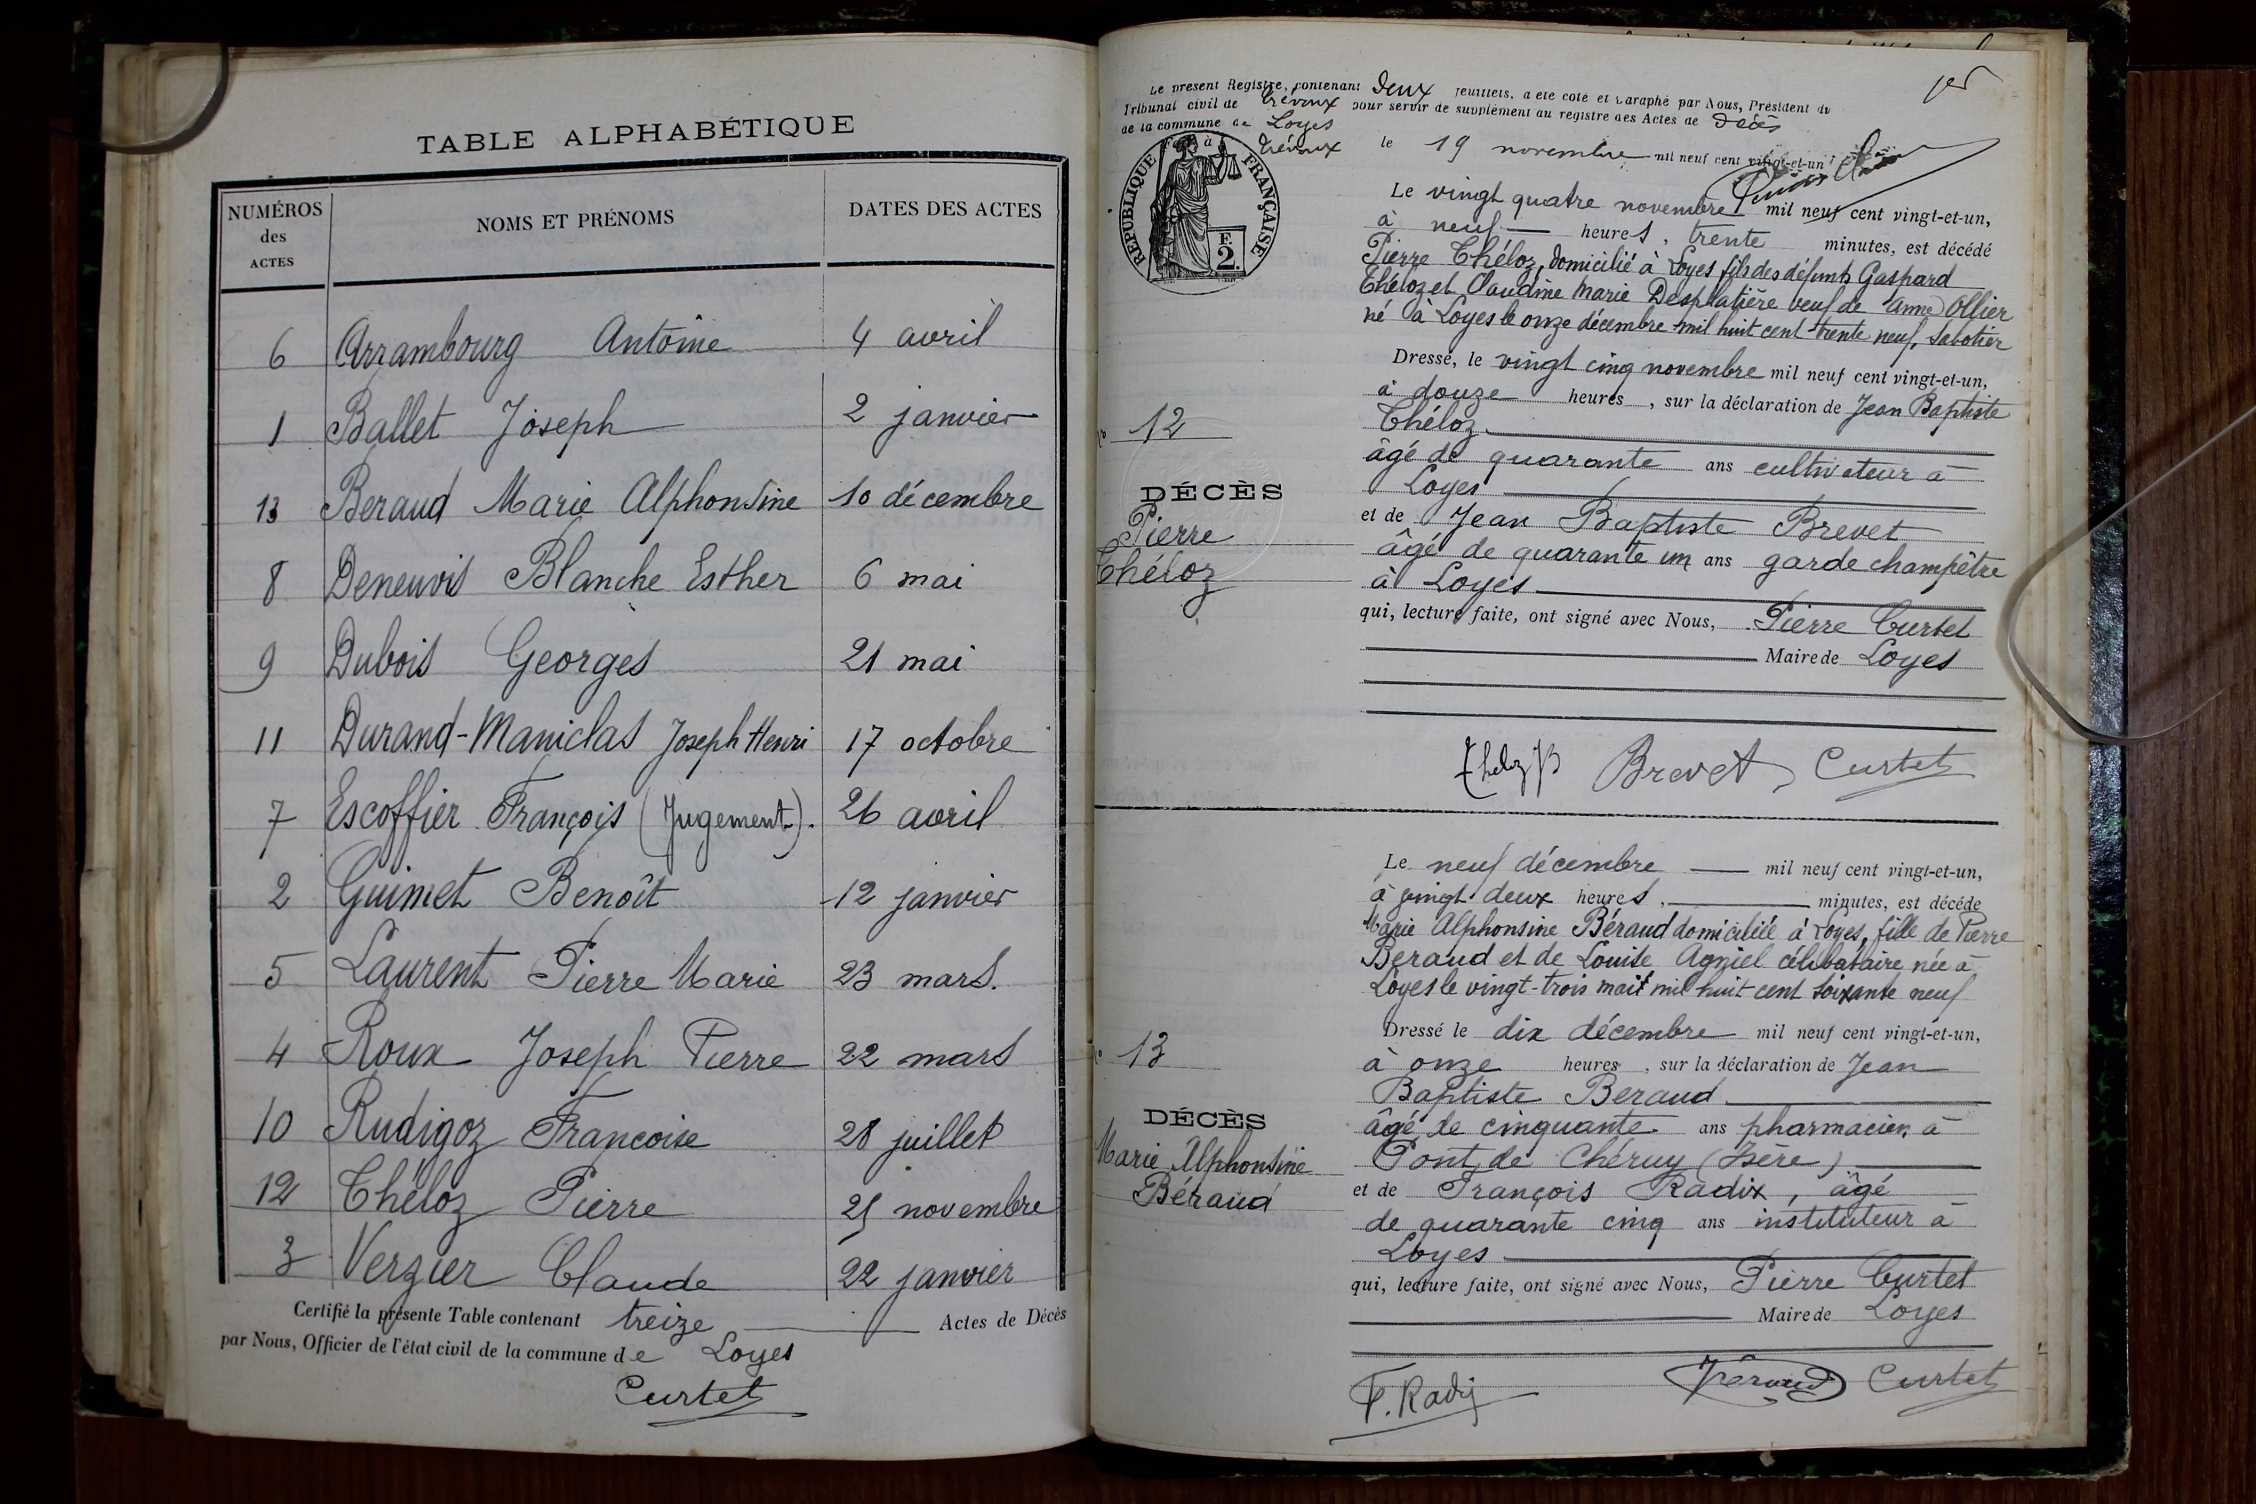 TABLE ALPHABÉTIQUE
NUMÉROS des ACTES NOMS ET PRÉNOMS DATES DES ACTES
6 Arrambourg Antoine 4 avril
1 Ballet Joseph 2 janvier
13 Beraud Marie Alphonsine 10 décembre
8 Deneuvis Blanche Esther 6 mai
9 Dubois Georges 21 mai
11 Durand-Maniclas Joseph Henri 17 octobre
7 Escoffier François (Jugement). 26 avril
2 Guimet Benoît 12 janvier
5 Laurent Pierre Marie 23 mars.
4 Roux Joseph Pierre 22 mars
10 Rudigoz Francoise 28 juillet
12 Théloz Pierre 25 novembre
3 Verzier Claude 22 janvier
Certifié la présente Table contenant treize Actes de Décès
par Nous, Officier de l'état civil de la commune de Loyes
Curtet
Le présent Registre, contenant Deux feuillets, a été coté et paraphé par Nous, Président du
Tribunal civil de Trévoux pour servir de supplément au registre des Actes de Décès
de la commune de Loyes
Trévoux le 19 novembre mil neuf cent vingt-et-un
RÉPUBLIQUE FRANÇAISE
F.
2.
Le vingt quatre novembre mil neuf cent vingt-et-un,
à neuf heures, trente minutes, est décédé
Pierre Théloz, domicilié à Loyes fils des défunts Gaspard
Théloz et Claudine Marie Desplatière veuf de Anne Ollier
né à Loyes le onze décembre mil huit cent trente neuf, sabotier
Dressé, le vingt cinq novembre mil neuf cent vingt-et-un,
à douze heures, sur la déclaration de Jean Baptiste
Théloz
âgé de quarante ans cultivateur à
Loyes
et de Jean Baptiste Brevet
âgé de quarante un ans garde champêtre
à Loyes
qui, lecture faite, ont signé avec Nous, Pierre Curtet
Maire de Loyes
12
DÉCÈS
Pierre
Théloz
Theloz JB Brevet Curtet
Le neuf décembre mil neuf cent vingt-et-un,
à vingt deux heures, minutes, est décédé
Marie Alphonsine Béraud domiciliée à Loyes, fille de Pierre
Beraud et de Louise Agniel célibataire née à
Loyes le vingt-trois mai mil huit cent soixante neuf
Dressé le dix décembre mil neuf cent vingt-et-un,
à onze heures, sur la déclaration de Jean
Baptiste Beraud
âgé de cinquante ans pharmacien à
Pont de Chéruy (Isère)
et de François Radix, âgé
de quarante cinq ans instituteur à
Loyes
qui, lecture faite, ont signé avec Nous, Pierre Curtet
Maire de Loyes
13
DÉCÈS
Marie Alphonsine
Béraud
F. Radix Béraud Curtet